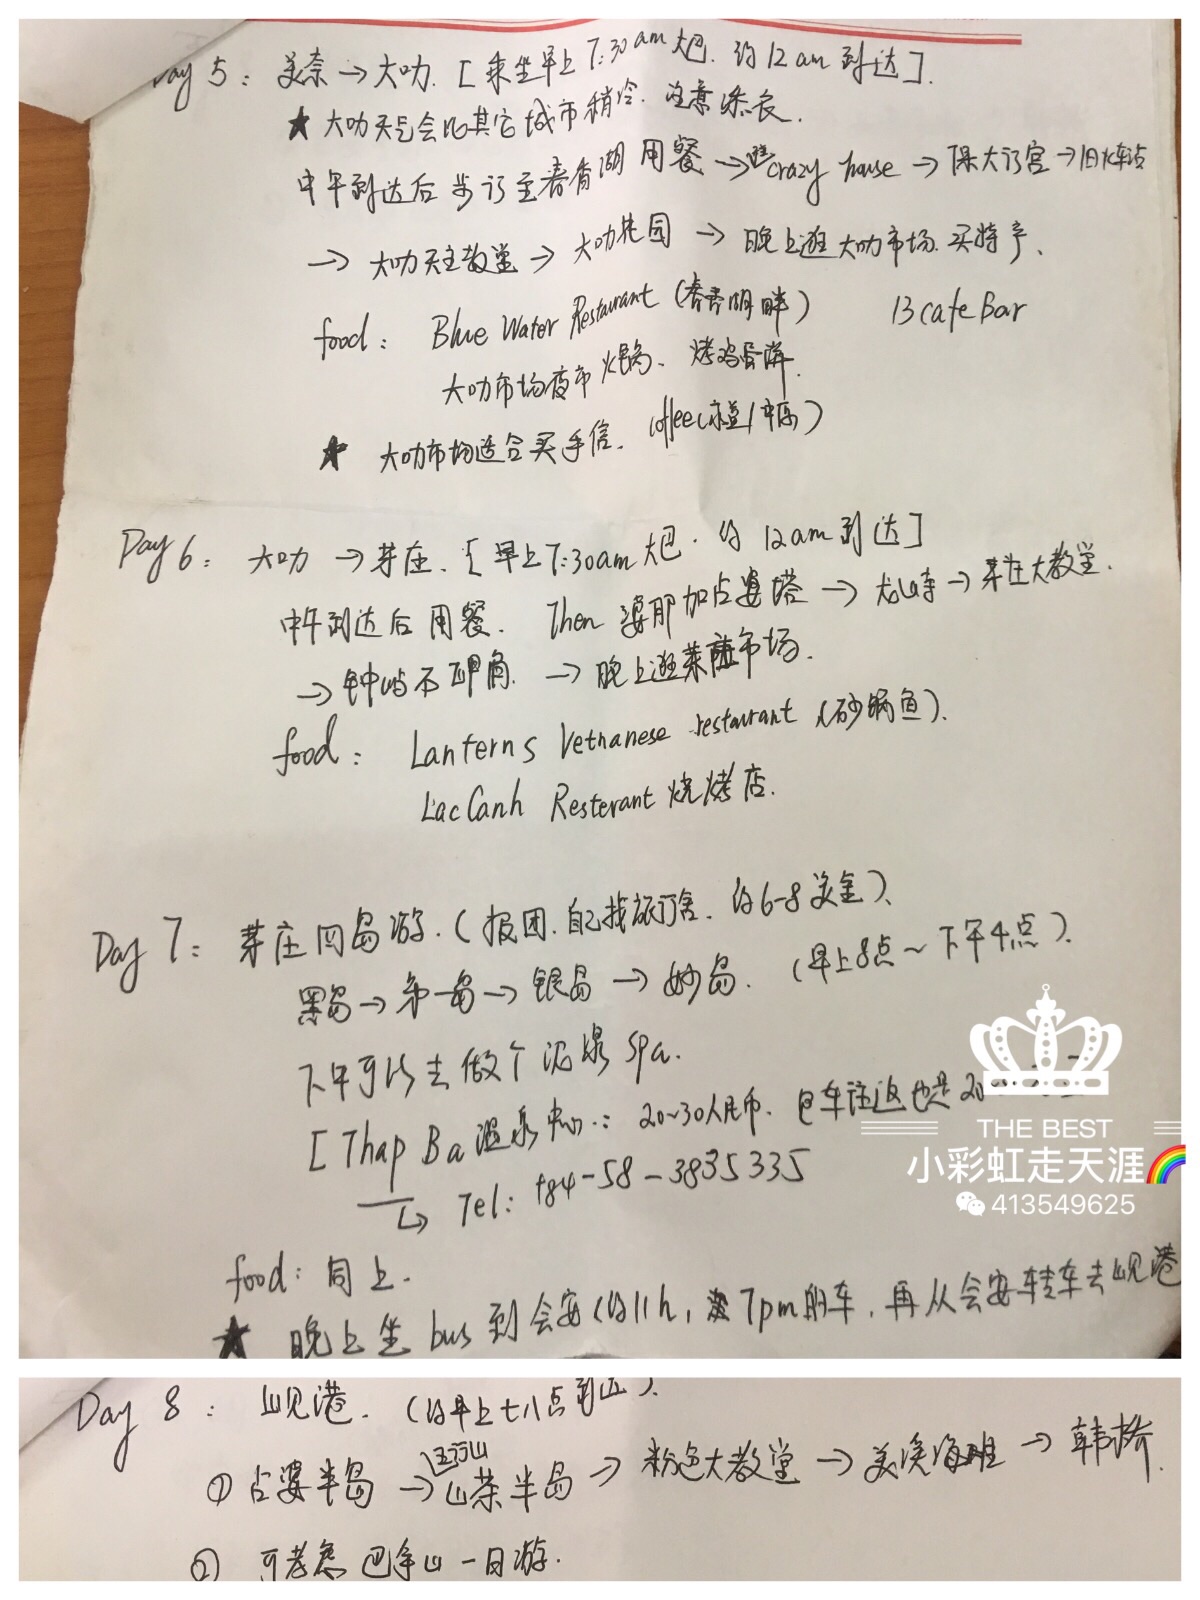 Day 5： 美奈→大叻.［乘坐早上7:30am大巴.约12am到达］.
★ 大叻天气会比其它城市稍冷.注意添衣.
中午到达后步行至春香湖用餐→逛crazy house→保大行宫→旧火车站
→大叻天主教堂→大叻花园→晚上逛大叻市场.买特产、
food： Blue Water Restaurant (春香湖畔) 13 cafe Bar
大叻市场夜市火锅、烤鸡蛋饼.
★ 大叻市场适合买手信. coffee(
Day 6： 大叻→芽庄.［早上7:30am大巴.约12am到达］
中午到达后用餐. Then 婆那加占婆塔→龙山寺→芽庄大教堂.
→钟屿石岬角.→晚上逛 市场.
food： Lanterns Vetnanese restaurant (砂锅鱼).
Lac Canh Resterant 烧烤店.
Day 7： 芽庄四岛游.(报团.自己找旅行舍.约6-8美金)、
黑岛→第一岛→银岛→妙岛. (早上8点～下午4点).
下午可以去做个泥浆spa.
[Thap Ba温泉中心：20~30人民币.包车往返也是20
↳ Tel: +84-58-3835335
food：同上.
★ 晚上坐bus到会安(约11h, 7pm的车,再从会安转车去岘港
THE BEST
小彩虹走天涯🌈
413549625
Day 8： 岘港.(约早上七八点到达).
①占婆半岛→五行山 山茶半岛→粉色大教堂→美溪海滩→韩桥.
②可考虑巴拿山一日游.